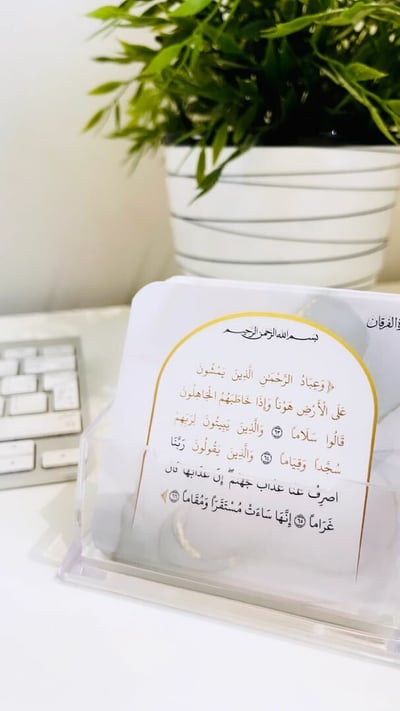 بسم الله الرحمن الرحيم
الفرقان
﴿ وَعِبَادُ الرَّحْمَٰنِ الَّذِينَ يَمْشُونَ
عَلَى الْأَرْضِ هَوْنًا وَإِذَا خَاطَبَهُمُ الْجَاهِلُونَ
قَالُوا سَلَامًا ﴿٦٣﴾ وَالَّذِينَ يَبِيتُونَ لِرَبِّهِمْ
سُجَّدًا وَقِيَامًا ﴿٦٤﴾ وَالَّذِينَ يَقُولُونَ رَبَّنَا
اصْرِفْ عَنَّا عَذَابَ جَهَنَّمَ ۖ إِنَّ عَذَابَهَا كَانَ
غَرَامًا ﴿٦٥﴾ إِنَّهَا سَاءَتْ مُسْتَقَرًّا وَمُقَامًا ﴿٦٦﴾ ﴾